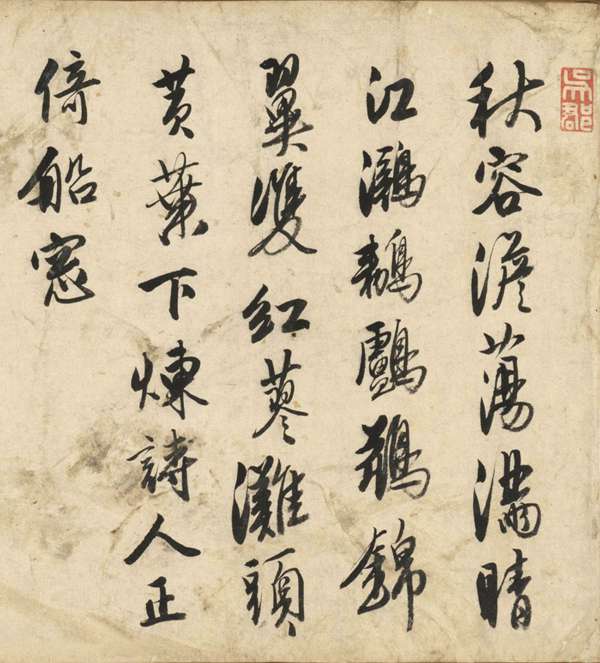 吳郡
秋容澹蕩滿晴
江鸂鶒鸕鶿錦
翼雙紅蓼灘頭
黃葉下煉詩人正
倚船窻